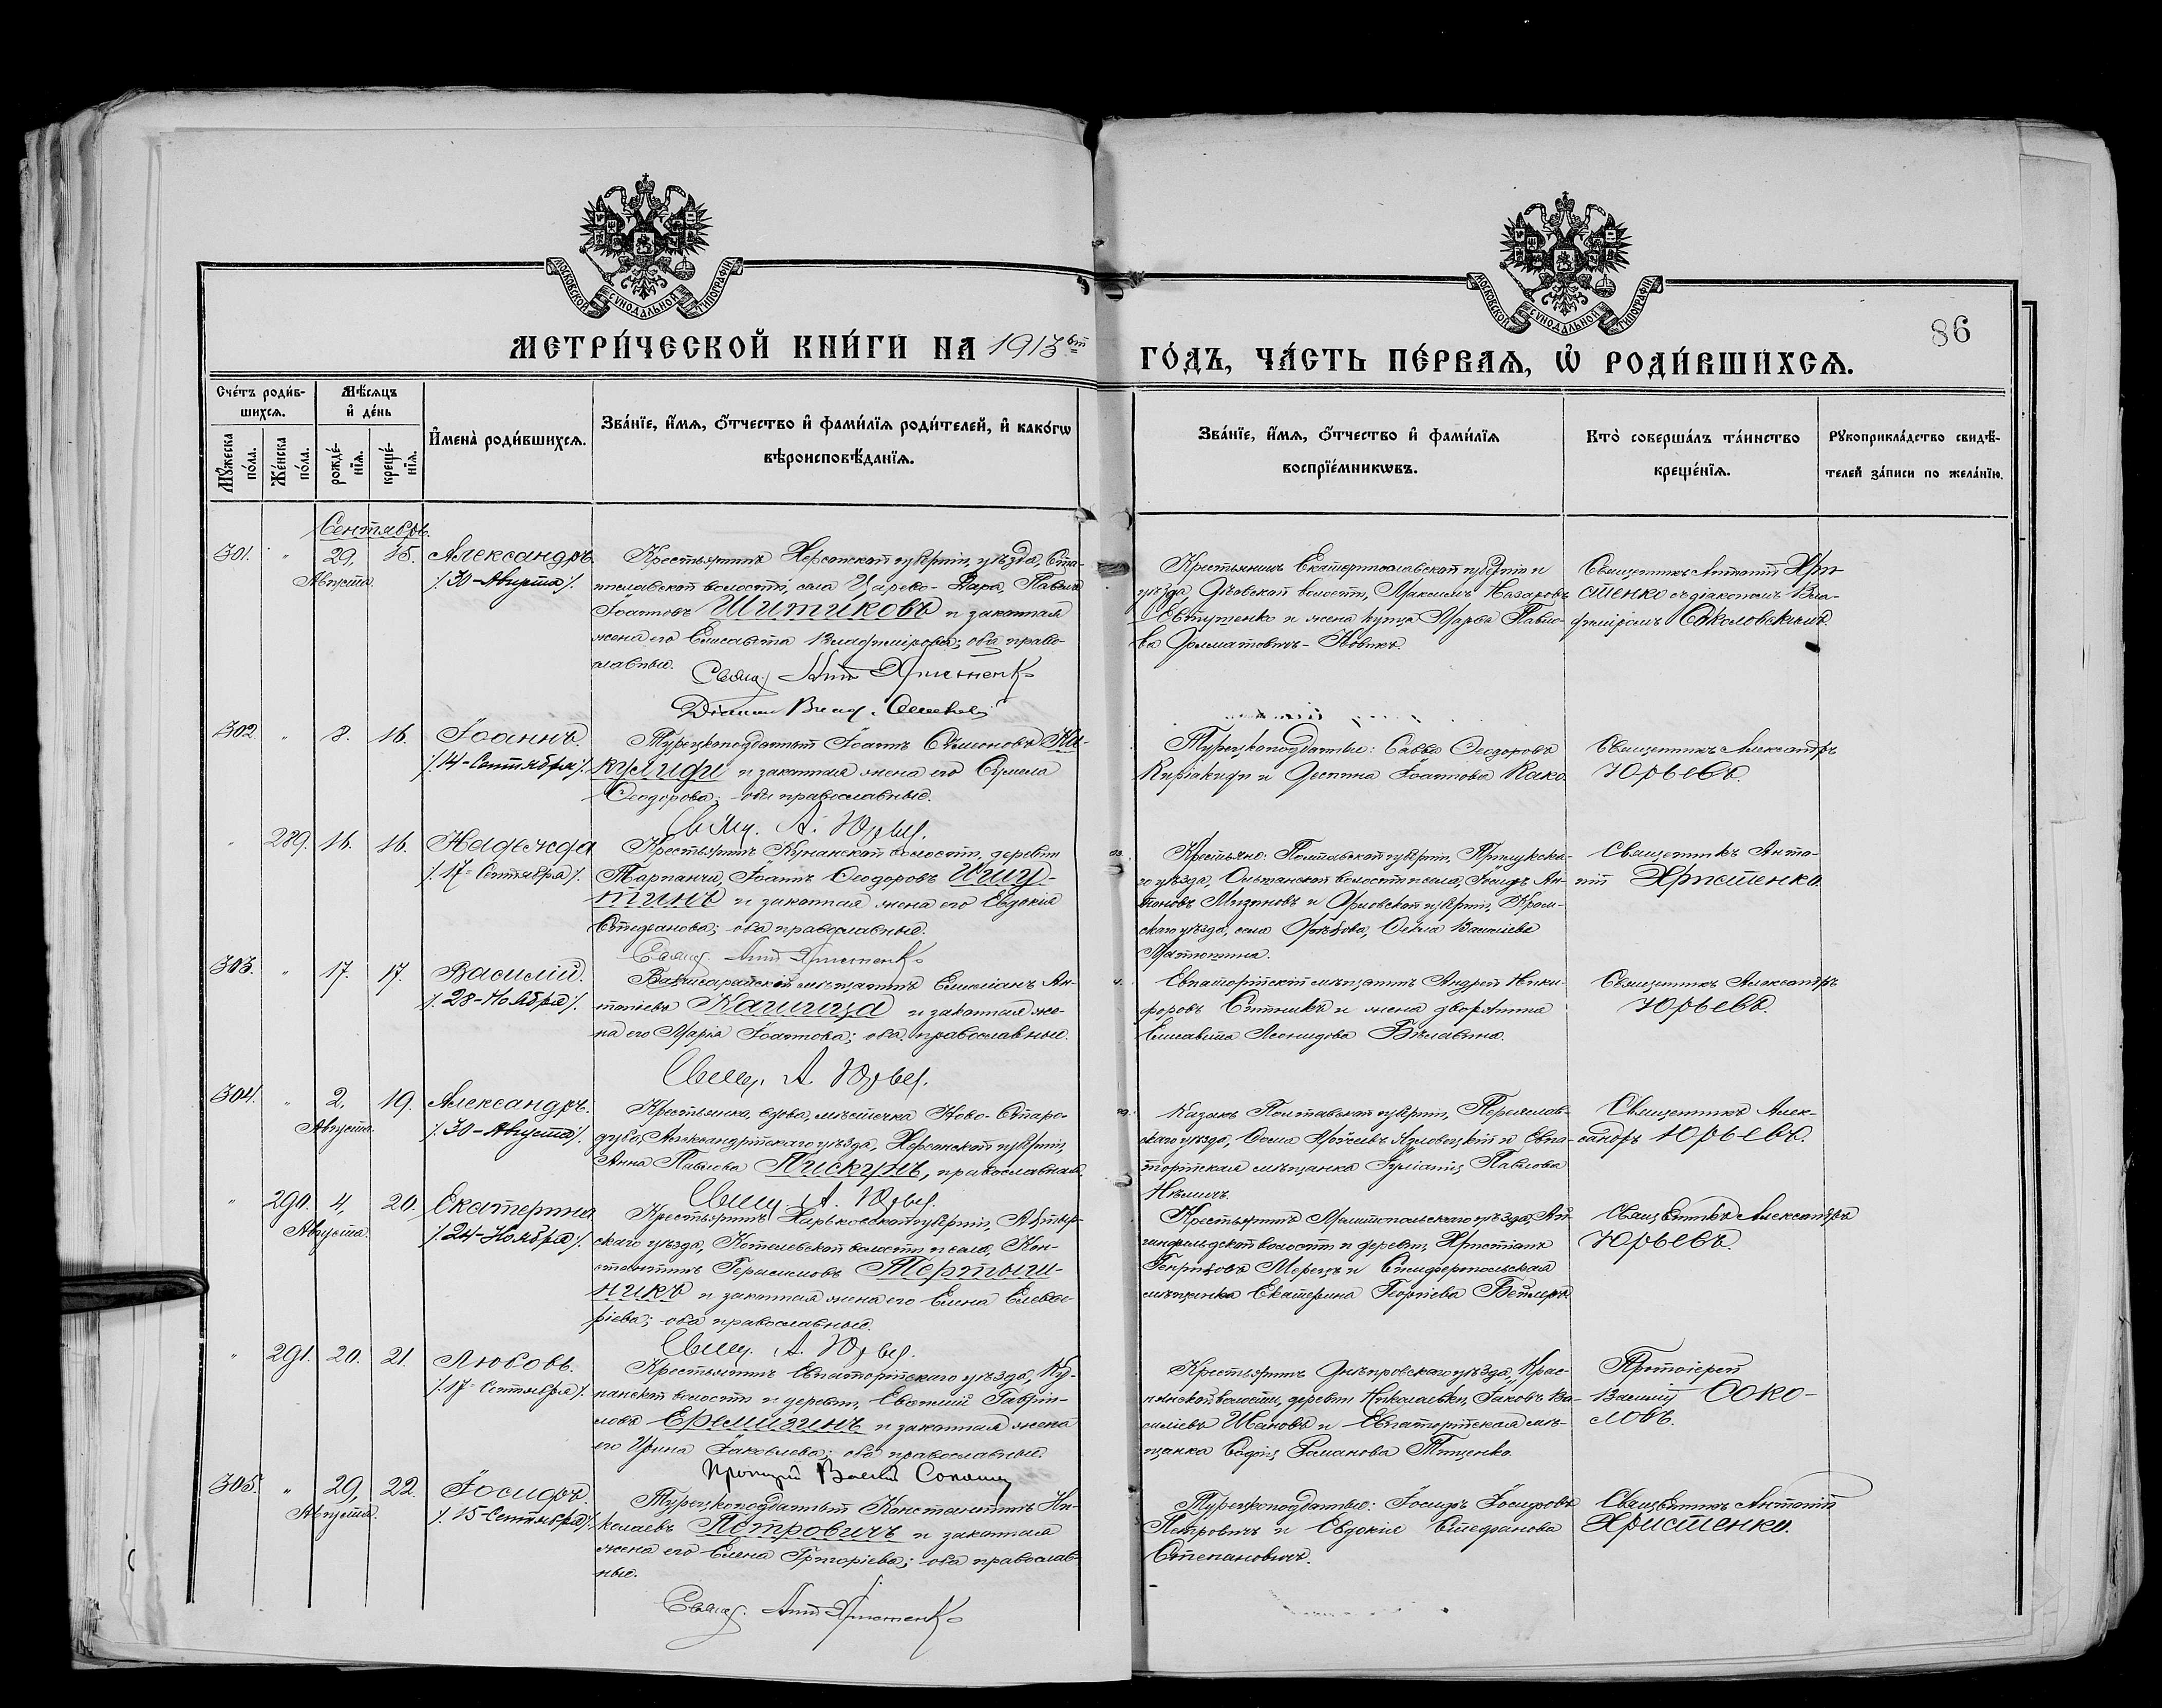 МОСКОВСКОЙ СУНОДАЛЬНОЙ ТИПОГРАФІИ
МОСКОВСКОЙ СУНОДАЛЬНОЙ ТИПОГРАФІИ
86
МЕТРИ́ЧЕСКОЙ КНИ́ГИ НА 1913
ГО́ДЪ, ЧА́СТЬ ПЕ́РВАЯ, Ѡ РОДИ́ВШИХСЯ.
Сче́тъ роди́в-
шихся.
Мꙋ́жеска по́ла.
Же́нска по́ла.
Мѣ́сяцъ
и҆ де́нь
рожде́-
нїя.
креще́-
нїя.
И҆мена̀ роди́вшихся.
Зва́нїе, и҆́мя, ѻ҆́тчество и҆ фами́лїя роди́телей, и҆ како́гѡ
вѣроисповѣ́данїя.
Зва́нїе, и҆́мя, ѻ҆́тчество и҆ фами́лїя
воспрїе́мникѡвъ.
Кто̀ соверша́лъ та́инство
креще́нїя.
Рꙋкоприкла́дство свидѣ́-
телей за́писи по жела́нїю.
Сентябрь.
301. " 29, 15. Александръ.
Августа.
/. 30-Августа /.
Крестьянинъ Херсонской губерніи, уѣзда, Ста-
ниславской волости, села Царево-Дара, Павелъ
Іоанновъ Шитиковъ и законная
жена его Елисавета Владимірова; оба право-
славные.
Крестьянинъ Екатеринославской губерніи и
уѣзда, волости, Максимъ Назаровъ
Евтушенко и жена купца Марѳа Павло-
ва Новикъ.
Священникъ Антоній Хри-
стенко съ діакономъ Вла-
диміромъ Соколовскимъ.
302. " 8. 16. Іоаннъ.
/. 14-Сентября /.
Турецкоподданный Іоаннъ Сѵмеоновъ Ки-
кулиди и законная жена его Сумела
Ѳеодорова; оба православные.
Свящ. А. Юрьевъ.
Турецкоподданные: Савва Ѳеодоровъ
Киріакиди и Деспина Іоаннова Како.
Священникъ Александръ
Юрьевъ.
" 289. 16. 16. Надежда
/. 17-Сентября /.
Крестьянинъ Кунанской волости, деревни
Тарпанчи, Іоаннъ Ѳеодоровъ Ишу-
тинъ и законная жена его Евдокія
Стефанова; оба православные.
Крестьяне: Полтавской губерніи, Прилукска-
го уѣзда, Ольшанской волости и села, Іосифъ Ан-
тоновъ Мизиновъ и Орловской губерніи, Кром-
скаго уѣзда, села Ѳекла Василіева
Матюшина.
Священникъ Анто-
ній Христенко.
303. " 17. 17. Василій.
/. 28-Ноября /.
Бахчисарайскій мѣщанинъ Емиліанъ Ан-
тоніевъ Кашица и законная же-
на его Марія Іоаннова; оба православные.
Свящ. А. Юрьевъ.
Евпаторійскій мѣщанинъ Андрей Ники-
форовъ Ситникъ и жена дворянина
Елисавета Леонидова Бѣлавина.
Священникъ Александръ
Юрьевъ.
304. " 2, 19. Александръ.
Августа.
/. 30-Августа /.
Крестьянка, вдова, мѣстечка Ново-Старо-
дуба, Александрійскаго уѣзда, Херсонской губерніи,
Анна Павлова Пискунъ, православная.
Свящ. А. Юрьевъ.
Казакъ Полтавской губерніи, Переяслав-
скаго уѣзда, Яцловецкій и Евпа-
торійская мѣщанка Іуліанія Павлова
Нѣмичъ.
Священникъ Алек-
сандръ Юрьевъ.
" 290. 4, 20. Екатерина
Августа.
/. 24-Ноября /.
Крестьянинъ Харьковской губерніи, Ахтыр-
скаго уѣзда, Котелевской волости и села, Кон-
стантинъ Герасимовъ Тертыш-
никъ и законная жена его Елена Елевѳе-
ріева; оба православные.
Свящ. А. Юрьевъ.
Крестьянинъ Мелитопольскаго уѣзда,
волости и деревни, Христіанъ
Генриховъ Мерецъ и Симферопольская
мѣщанка Екатерина Георгіева
Священникъ Александръ
Юрьевъ.
" 291. 20. 21. Любовь.
/. 17-Сентября /.
Крестьянинъ Евпаторійскаго уѣзда, Ку-
нанской волости и деревни, Евѳимій Гаврі-
ловъ Еремизинъ и законная жена
его Ирина Іаковлева; оба православные.
Крестьянинъ Днѣпровскаго уѣзда,
волости, деревни Николаевки, Іаковъ Ва-
силіевъ Ивановъ и Евпаторійская мѣ-
щанка Софія Романова Тищенко.
Протоіерей
Василій Соко-
ловъ.
305. " 29, 22. Іосифъ.
Августа.
/. 15-Сентября /.
Турецкоподданный Константинъ Ни-
колаевъ Петровичъ и законная
жена его Елена Григоріева; оба православ-
ные.
Турецкоподданные: Іосифъ Іосифовъ
Петровичъ и Евдокія Стефанова
Степановичъ.
Священникъ Антоній
Христенко.